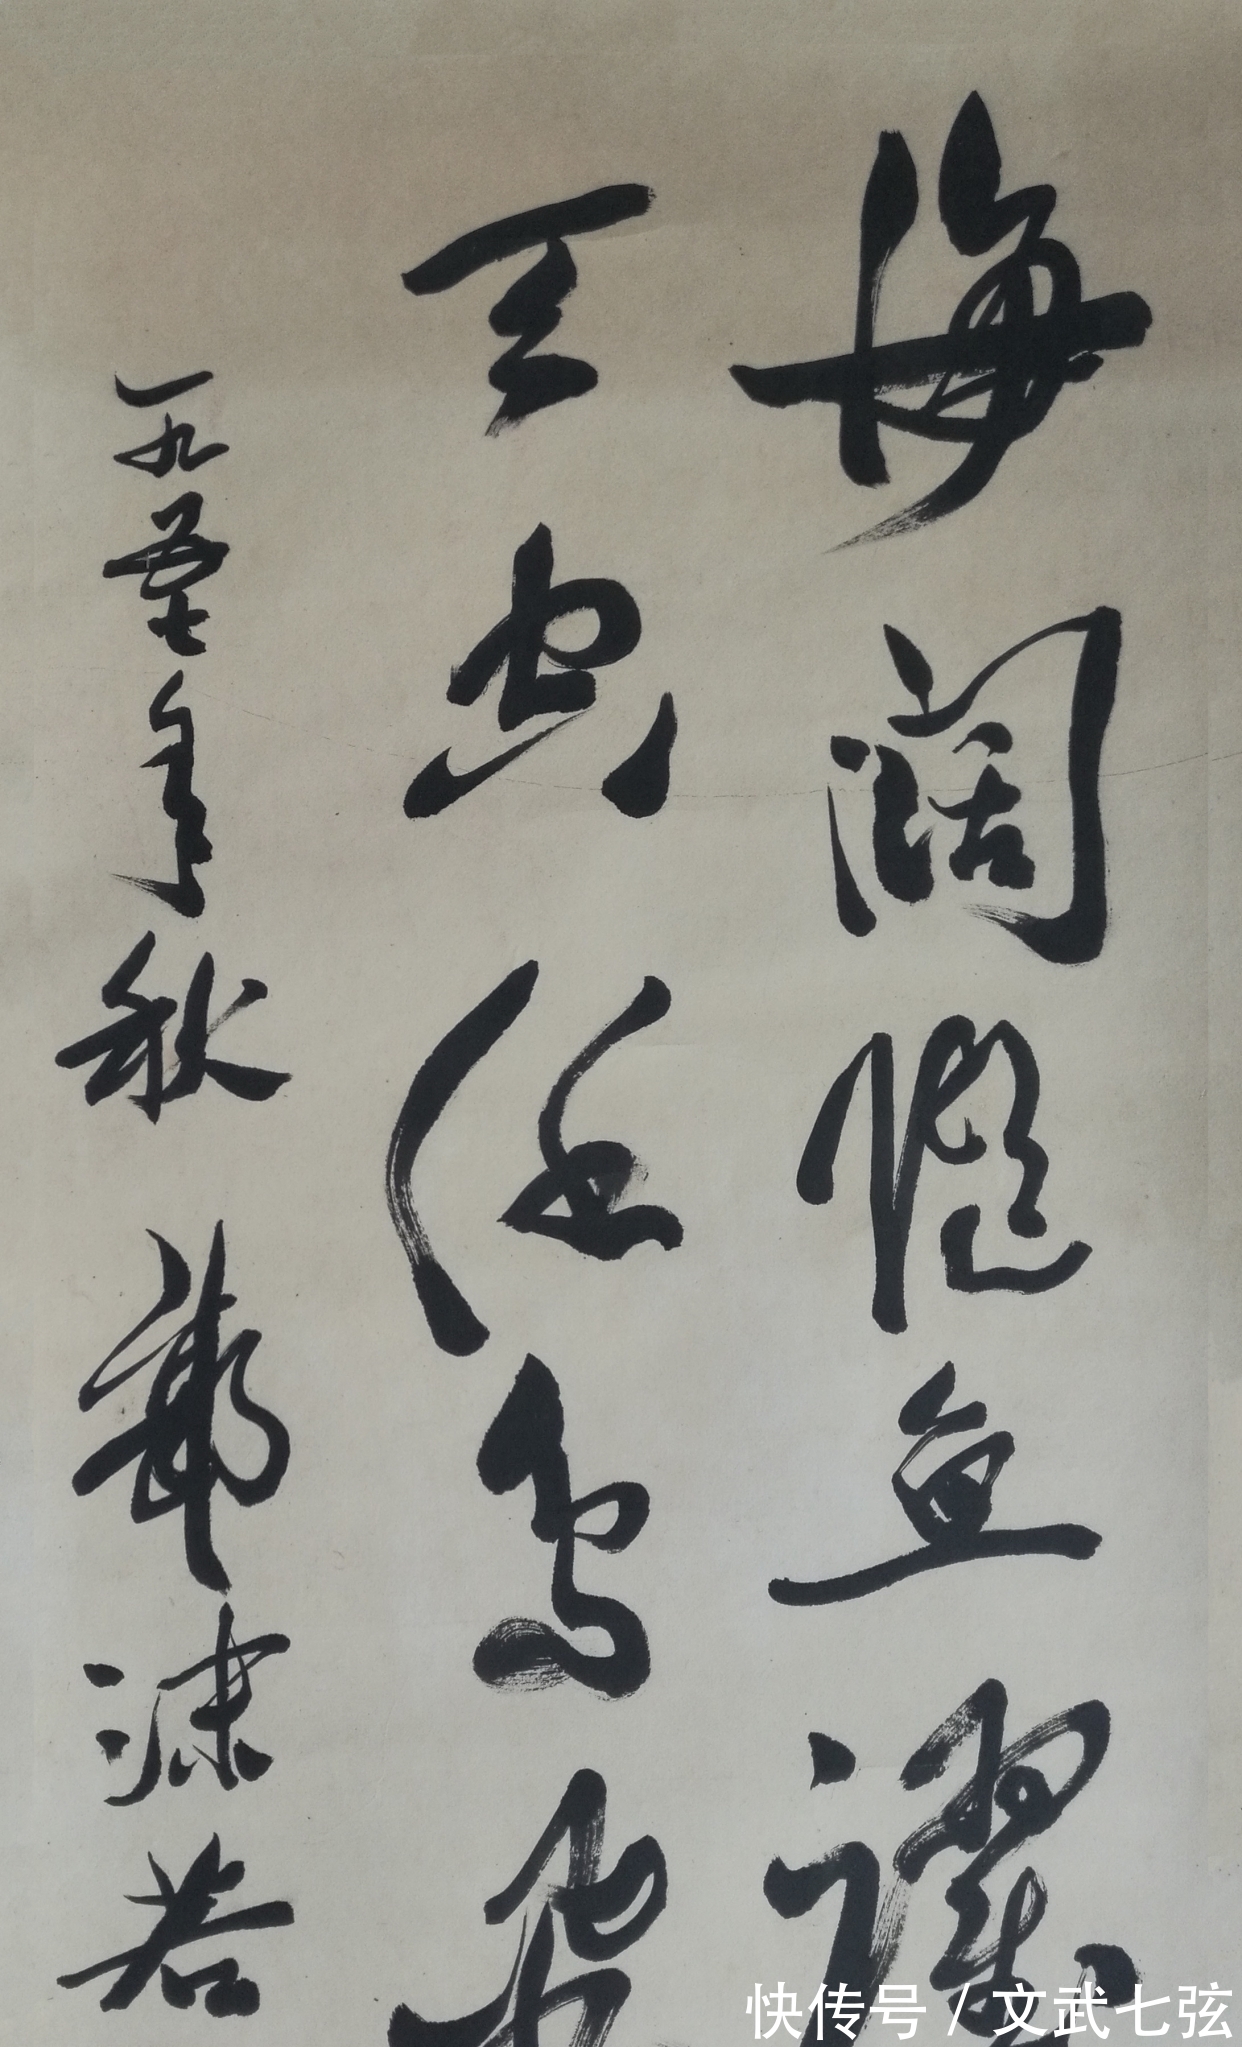 海阔凭鱼躍
天空任鸟飛
一九五七年秋 郭沫若
快传号 / 文武七弦